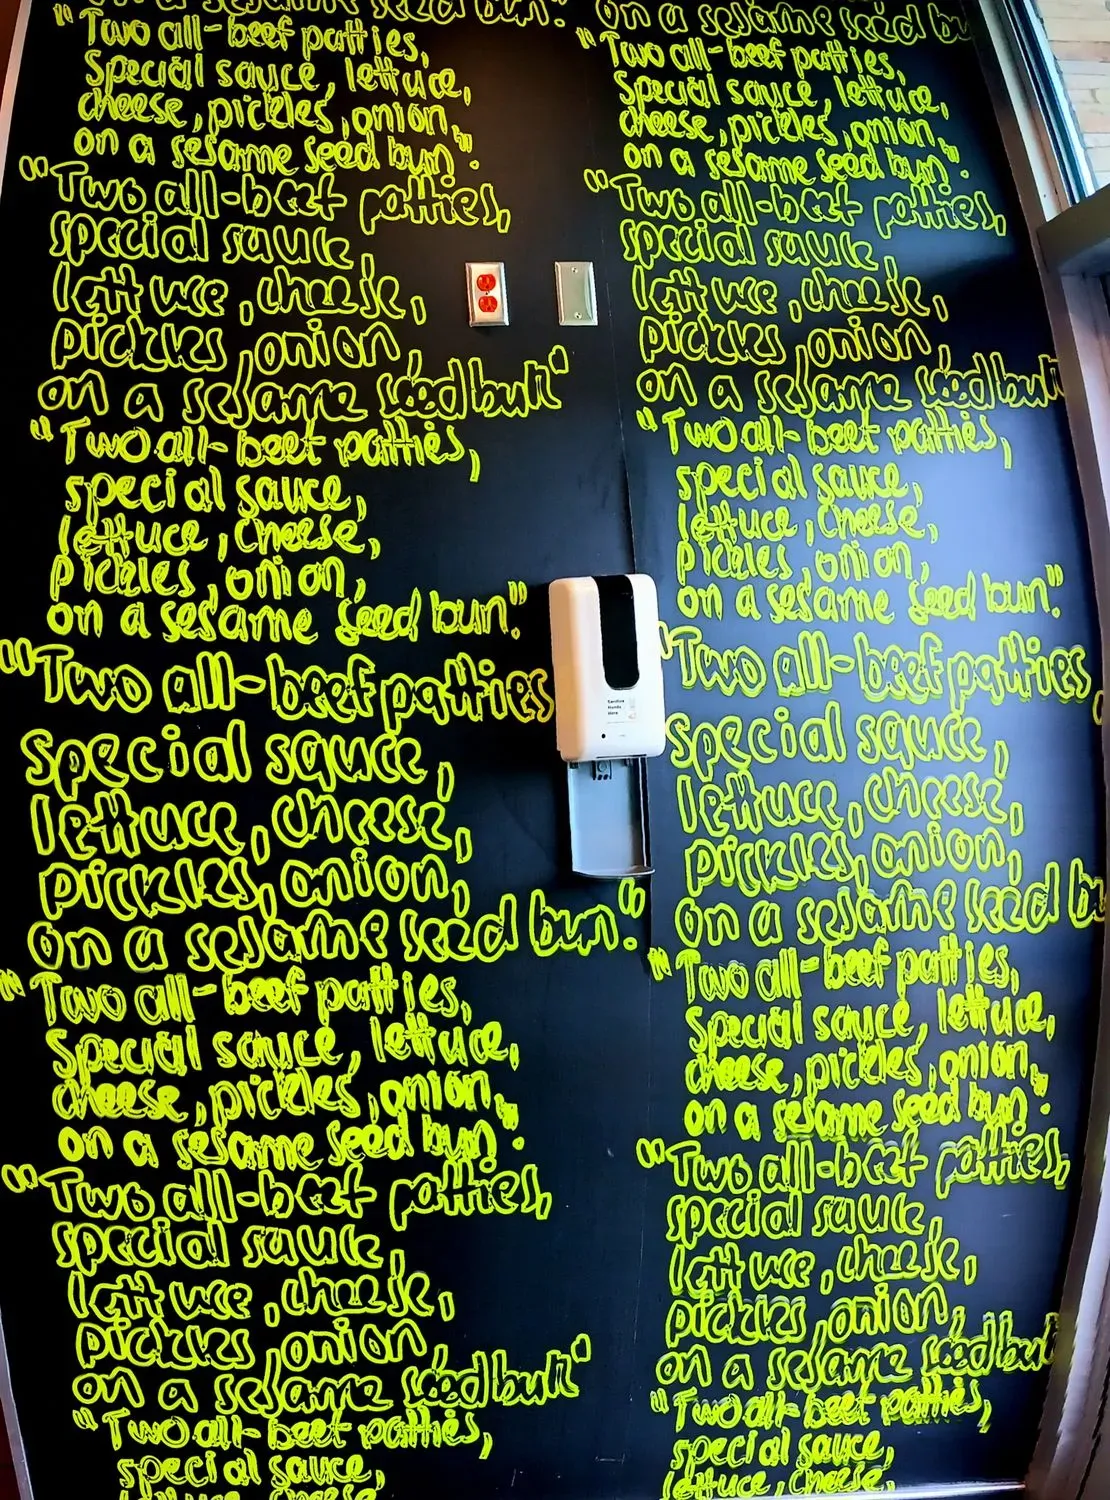 on a sesame seed bun."
"Two all-beef patties,
special sauce, lettuce,
cheese, pickles, onion,
on a sesame seed bun".
"Two all-beef patties,
special sauce,
lettuce, cheese,
pickles, onion,
on a sesame seed bun"
"Two all-beef patties,
special sauce,
lettuce, cheese,
pickles, onion,
on a sesame seed bun."
"Two all-beef patties
special sauce,
lettuce, cheese,
pickles, onion,
on a sesame seed bun."
"Two all-beef patties,
special sauce, lettuce,
cheese, pickles, onion,
on a sesame seed bun".
"Two all-beef patties,
special sauce,
lettuce, cheese,
pickles, onion,
on a sesame seed bun"
"Two all-beef patties,
special sauce,
lettuce, cheese,
on a sesame seed bu
"Two all-beef patties,
special sauce, lettuce,
cheese, pickles, onion,
on a sesame seed bun".
"Two all-beef patties,
special sauce,
lettuce, cheese,
pickles, onion,
on a sesame seed bun
"Two all-beef patties,
special sauce,
lettuce, cheese,
pickles, onion,
on a sesame seed bun."
"Two all-beef patties,
special sauce,
lettuce, cheese,
pickles, onion,
on a sesame seed bu
"Two all-beef patties,
special sauce, lettuce,
cheese, pickles, onion,
on a sesame seed bun".
"Two all-beef patties,
special sauce,
lettuce, cheese,
pickles, onion,
on a sesame seed bun
"Two all-beef patties,
special sauce,
lettuce, cheese,
Sanitize
Hands
Here